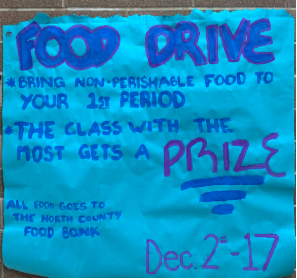 FOOD DRIVE
* BRING NON-PERISHABLE FOOD TO
YOUR 1ST PERIOD
* THE CLASS WITH THE
MOST GETS A PRIZE
ALL FOOD GOES TO
THE NORTH COUNTY
FOOD BANK
Dec. 2nd-17